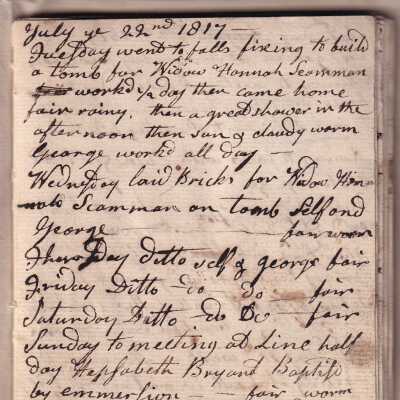 July ye 22nd 1817 —
Tuesday went to falls fixing to build
a tomb for Widow Hannah Scamman
workd 1/2 day then came home
fair rainy, then a great shower in the
afternoon then sun & cloudy worm
George workd all day —
Wednesday laid Bricks for Widow Han-
nah Scamman on tomb Self and
George — fair worm
Thorsday Ditto self & george fair
Friday Ditto — do — do — fair
Saturday Ditto — do Do — fair
Sunday to meeting at Line half
day Hepsabeth Bryant Baptisd
by emmersion — fair worm